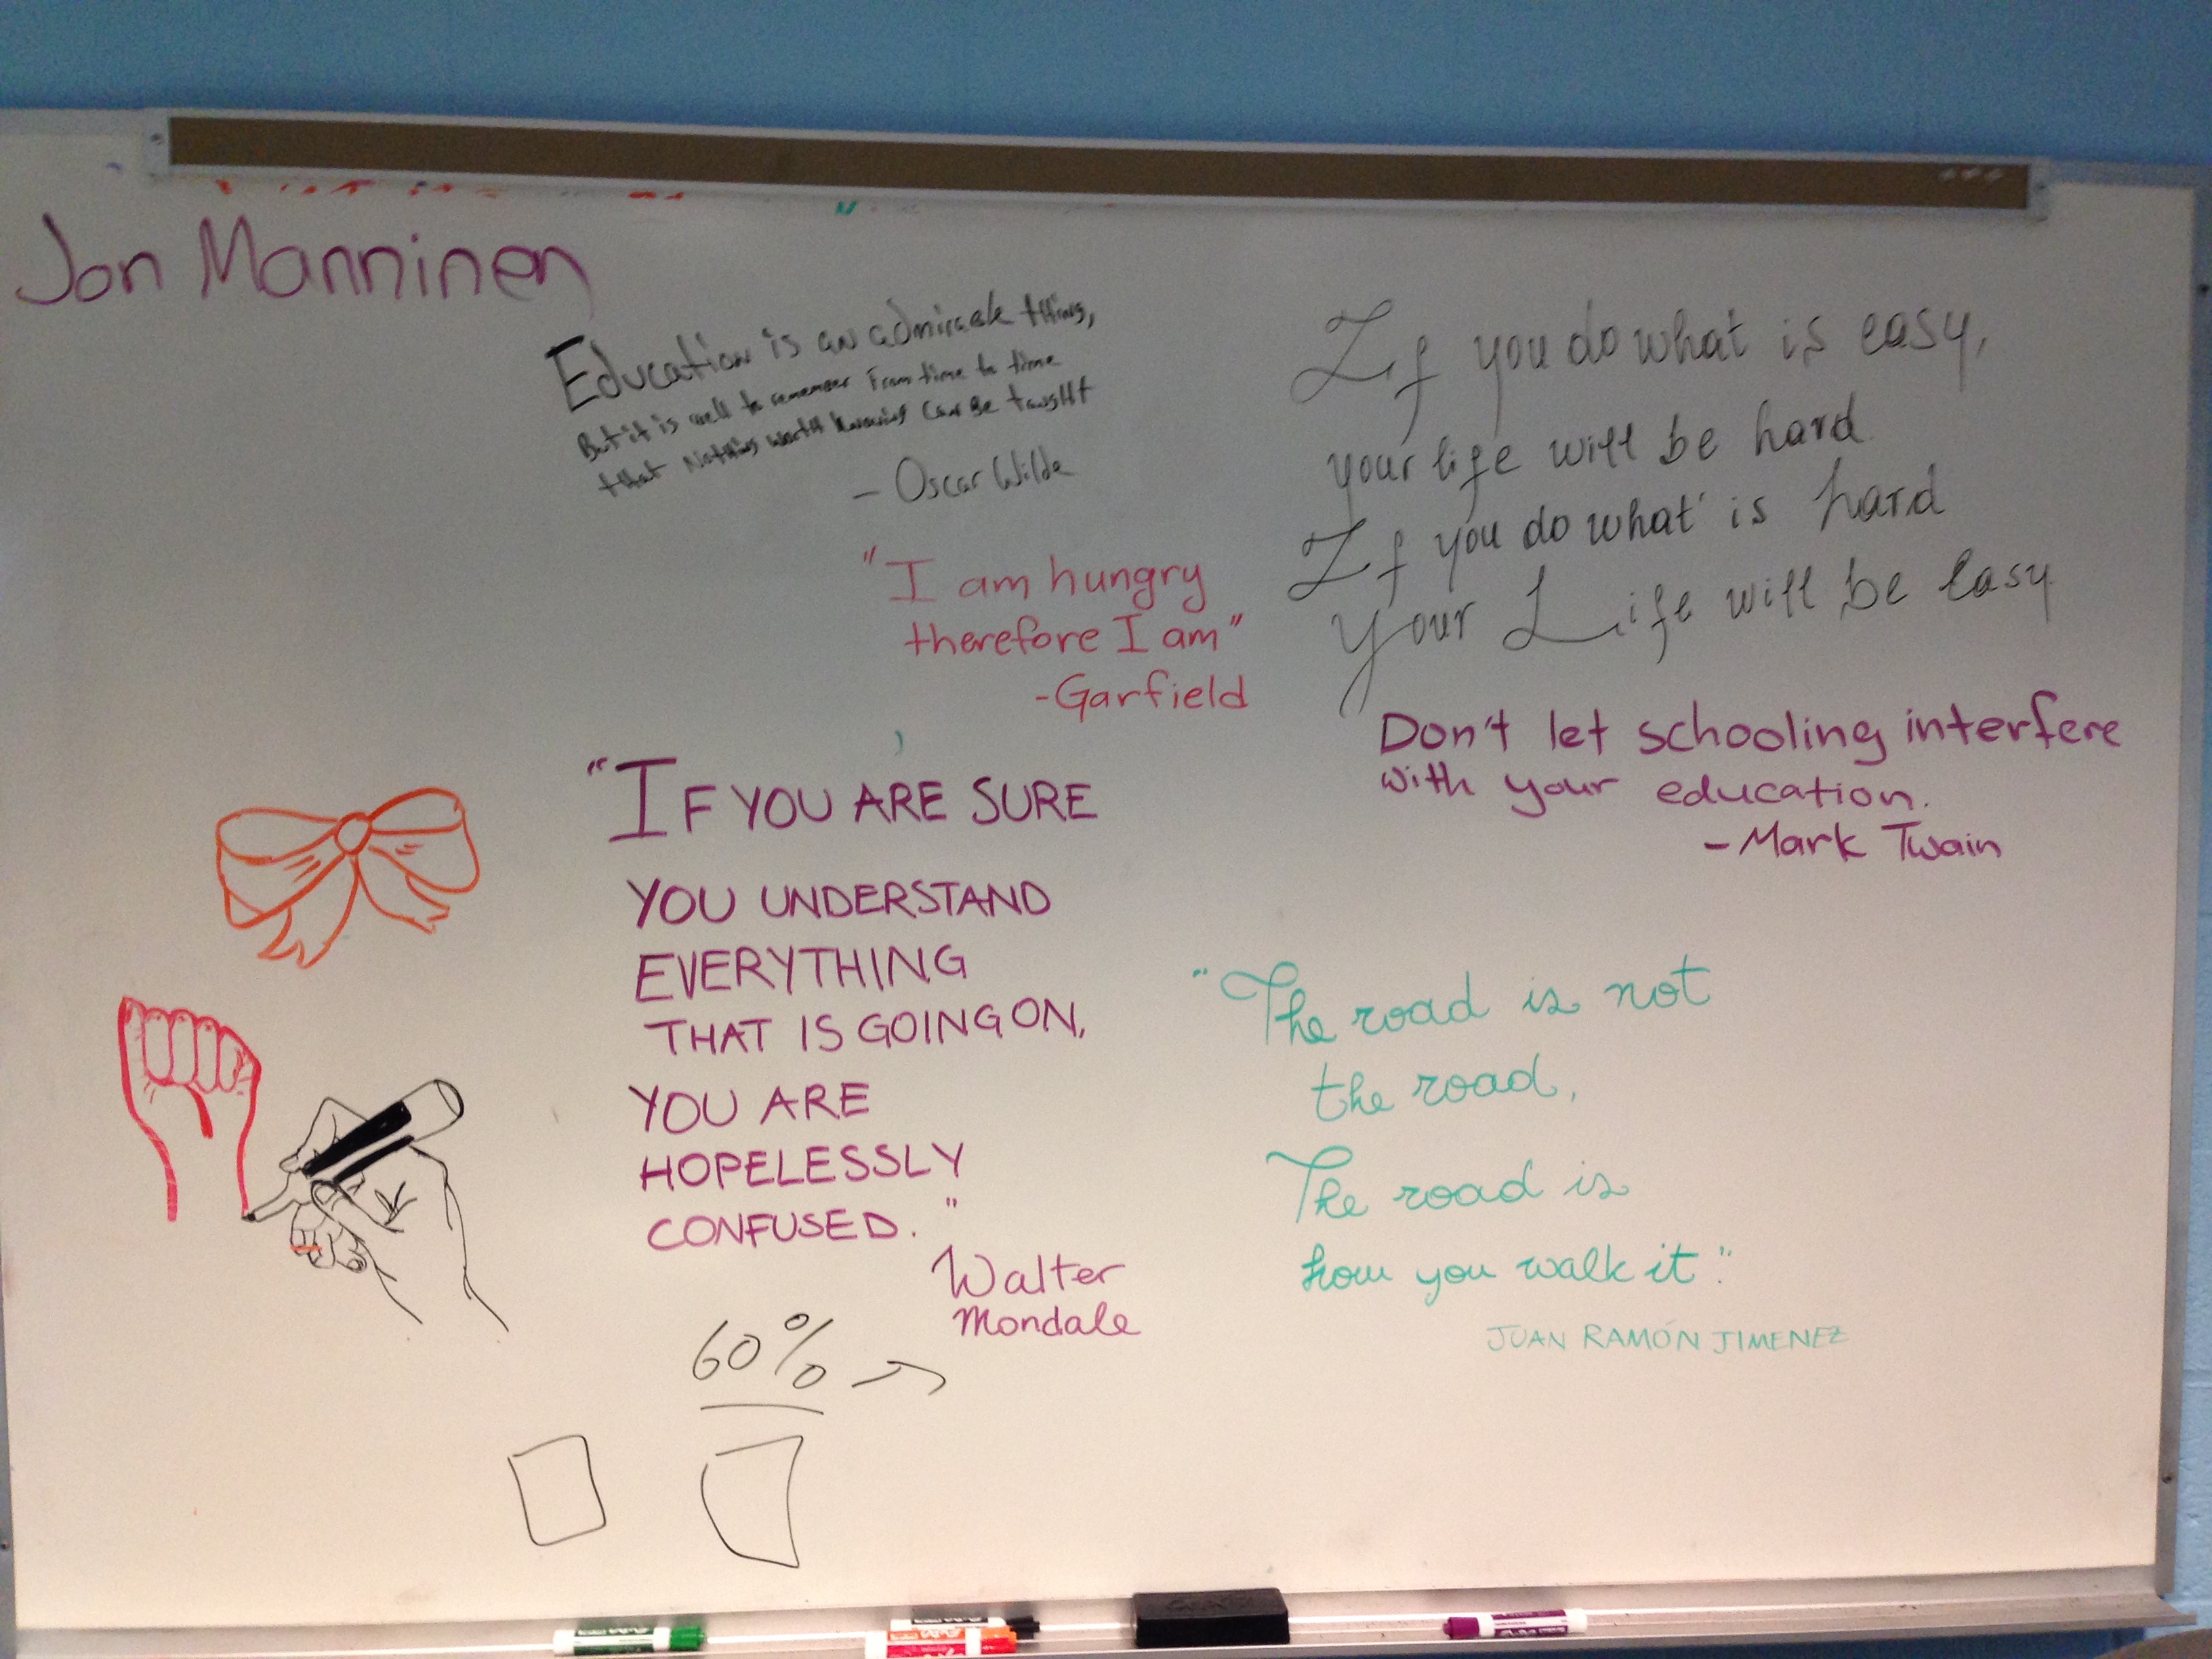 Jon Manninen
Education is an admirable thing,
But it is well to remember From time to time
that Nothing worth knowing Can Be taught
- Oscar Wilde
"I am hungry
therefore I am"
-Garfield
If you do what is easy,
your life will be hard
If you do what is hard
Your Life will be easy
Don't let schooling interfere
with your education.
- Mark Twain
"IF YOU ARE SURE
YOU UNDERSTAND
EVERYTHING
THAT IS GOING ON,
YOU ARE
HOPELESSLY
CONFUSED."
Walter
Mondale
"The road is not
the road,
The road is
how you walk it."
JUAN RAMÓN JIMENEZ
60%